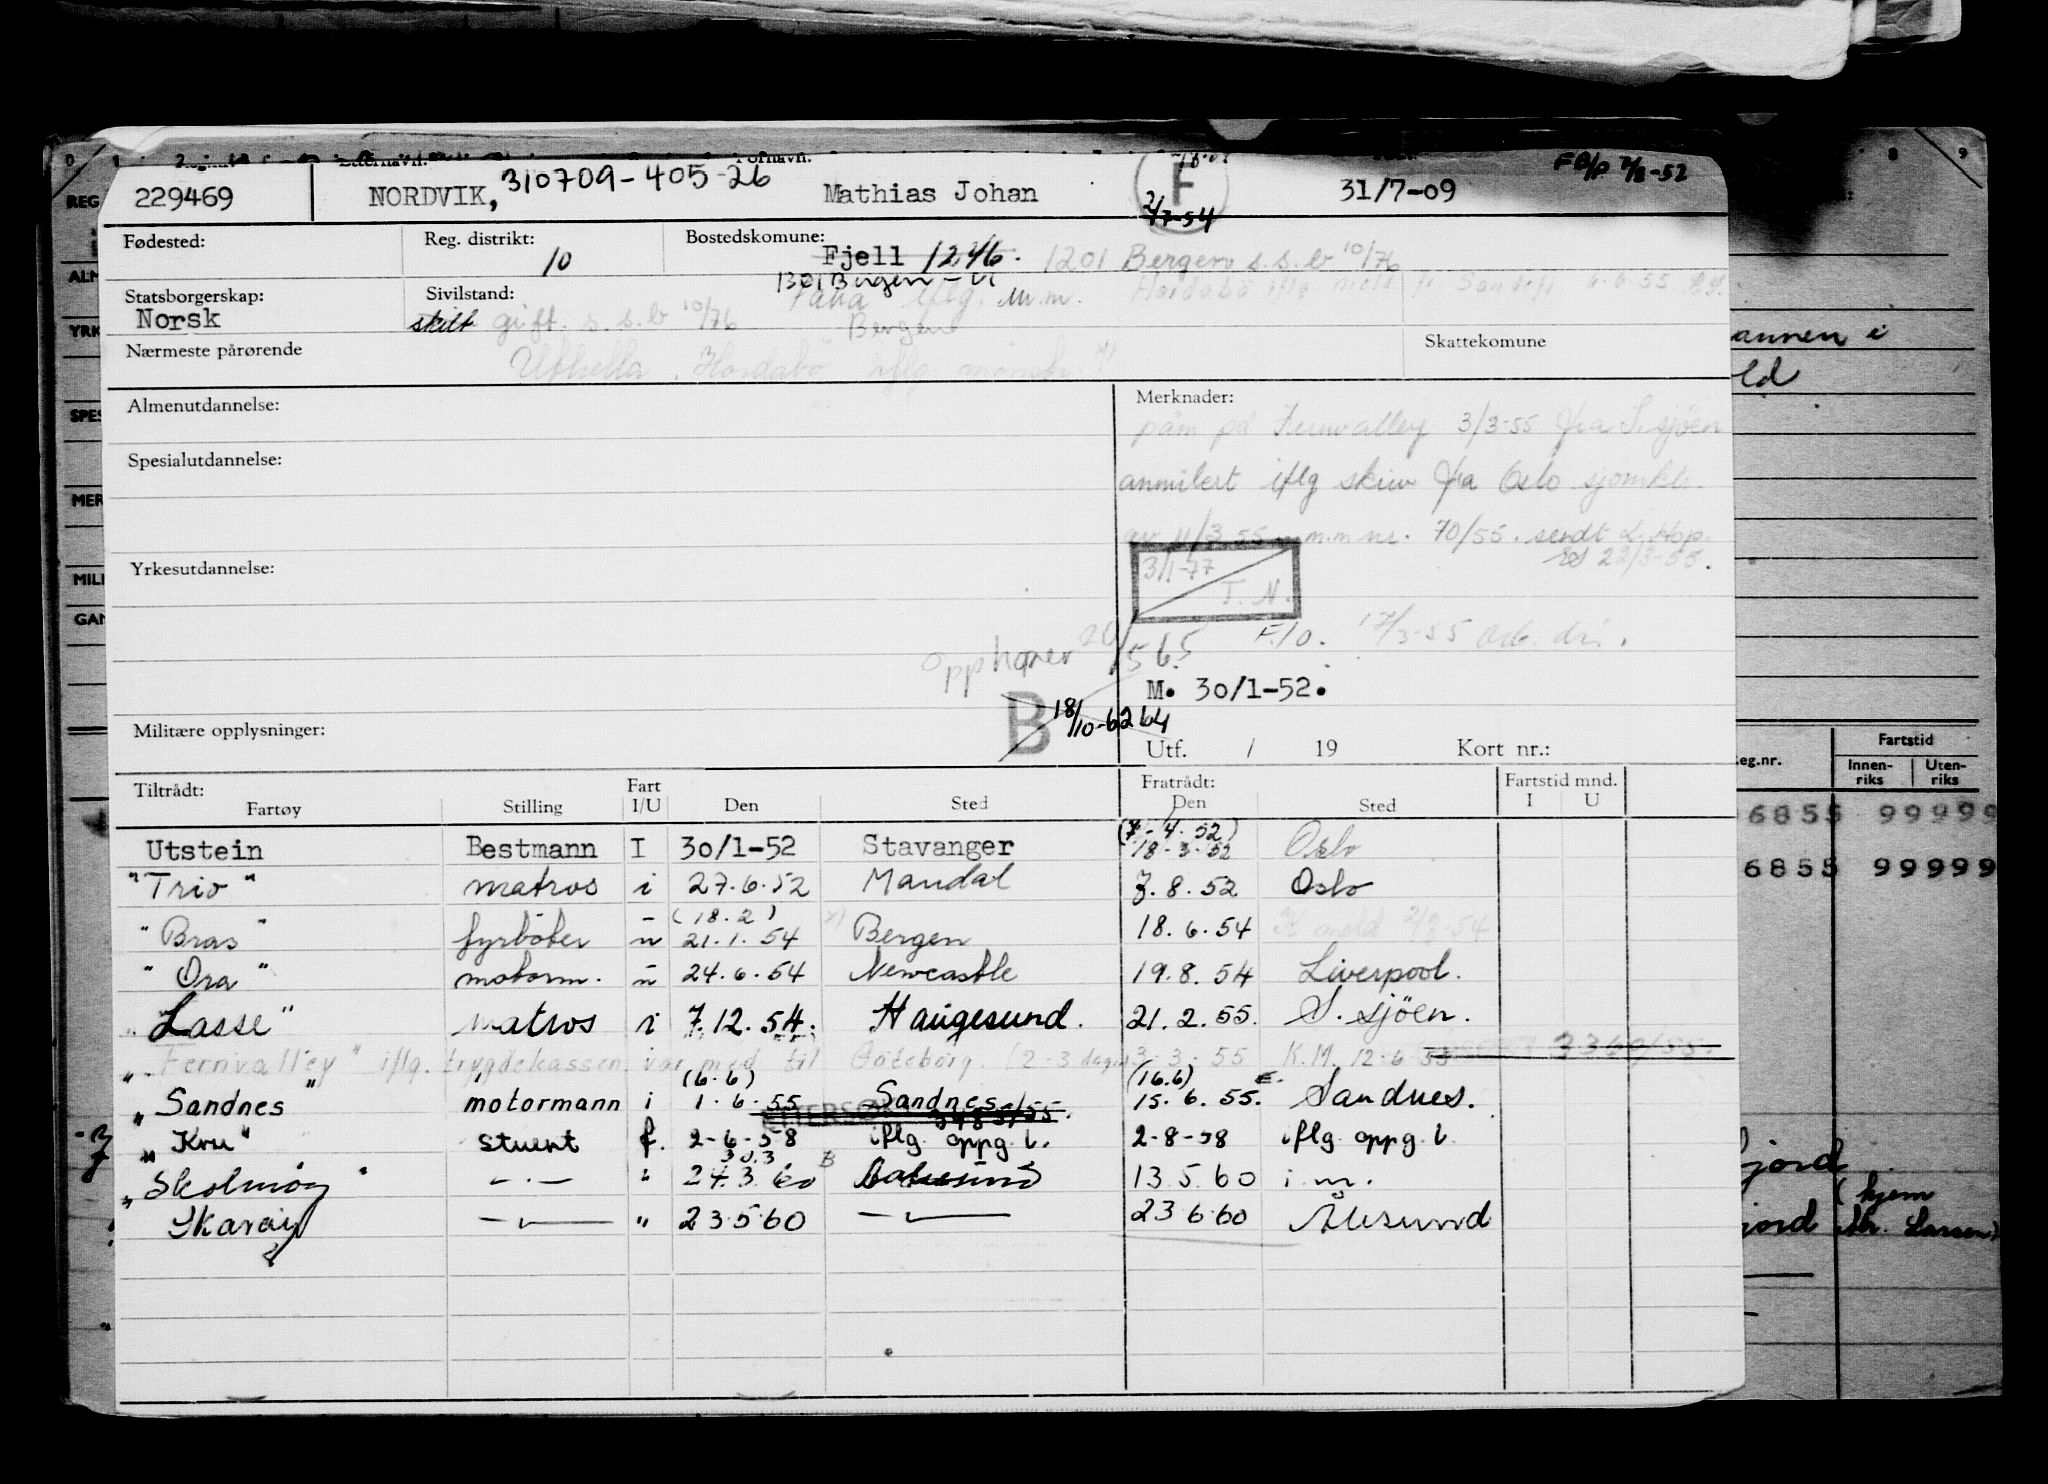 Etternavn: Fornavn: F FB/P 7/3-52
229469 NORDVIK, 310709-405-26 Mathias Johan 2/7-54 31/7-09
Fødested: Reg. distrikt: 10 Bostedskomune: Fjell 1246. 1201 Bergen s.s.b 10/76
1301 Bergen
Statsborgerskap: Sivilstand: Fana iflg. m.m. Hordabø iflg meld fr Sandefj 6-6-55
Norsk skilt gift. s.s.b 10/76 Bergen
Nærmeste pårørende Skattekomune
Uthella, Hordabø iflg mønstr.
Almenutdannelse: Merknader:
påm på Fernvalley 3/3-55 fra S.sjöen
Spesialutdannelse: annulert iflg skriv fra Oslo sjømktr.
av 11/3 55 m.m nr. 70/55. sendt
22/3-55.
Yrkesutdannelse: 3/1-77 T. N.
F/o. 17/3-55
Opphører 20/5 65
M. 30/1-52.
B 18/10-62 64
Militære opplysninger: Utf. / 19 Kort nr.:
Tiltrådt: Fart Fratrådt: Fartstid mnd.
Fartøy Stilling I/U Den Sted Den Sted I U
Utstein Bestmann I 30/1-52 Stavanger (7-4.52) 18-3-52 Oslo
"Trio" matros i 27.6.52 Mandal 7.8.52 Oslo
"Bras" fyrbøter u (18.2) 21.1.54 Bergen 18.6.54
"Ora" motorm. u 24.6.54 Newcastle 19.8.54 Liverpool.
"Lasse" matros i 7.12.54. Haugesund. 21.2.55. S.sjöen.
"Fernvalley" iflg. trygdekassen var med til Göteborg. (2-3 dager) 3-3-55 K.M. 12-6 55 3360/55.
"Sandnes" motormann i (6.6) 1.6.55 Sandnes (16.6) 15.6.55. Sandnes.
"Kru" stuert f. 2-6-58 iflg oppg. 2-8-58 iflg oppg.
"Skolmøy" -"- " 30.3 24.3.60 13.5.60 i.m.
Skarøy -"- " 23.5.60 -"- 23 6 60 Ålesund
0 1 2 8 9
REG
ALM
YRK
SPES
MER
MILI
annen i
ld
eg.nr. Fartstid
Innen-riks Uten-riks
6855 99999
6855 99999
fjord
(hjem